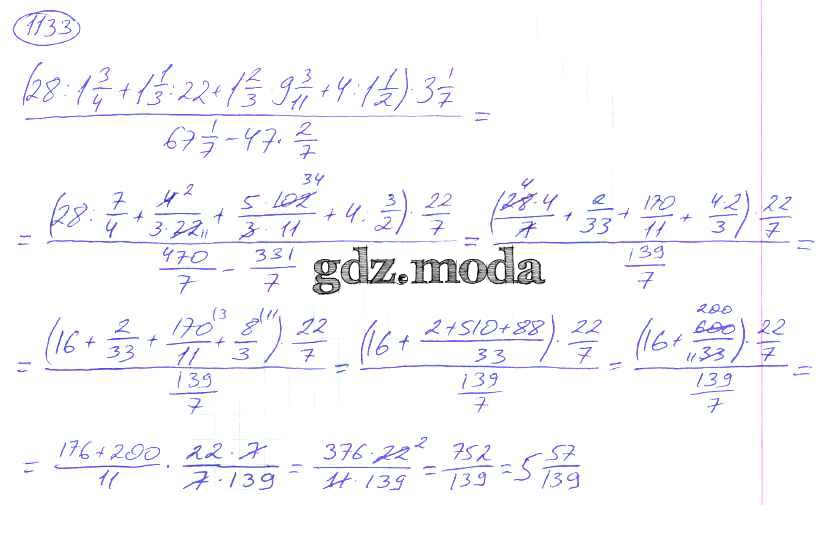 1133
(28 : 1 3/4 + 1 1/3 : 22 + 1 2/3 · 9 3/11 + 4 : 1 1/2) · 3 1/7
67 1/7 − 47 · 2/7 =
= (28 : 7/4 + 4 2/3·22 11 + 5·102 34/3·11 + 4 : 3/2) · 22/7 / 470/7 − 331/7 = (28 4·4/7 + 2/33 + 170/11 + 4·2/3) · 22/7 / 139/7 =
gdz.moda
= (16 + 2/33 + 170/11 (3 + 8/3 (11) · 22/7 / 139/7 = (16 + 2+510+88/33) · 22/7 / 139/7 = (16 + 600 200/33 11) · 22/7 / 139/7 =
= 176+200/11 · 22·7/7·139 = 376·22 2/11·139 = 752/139 = 5 57/139